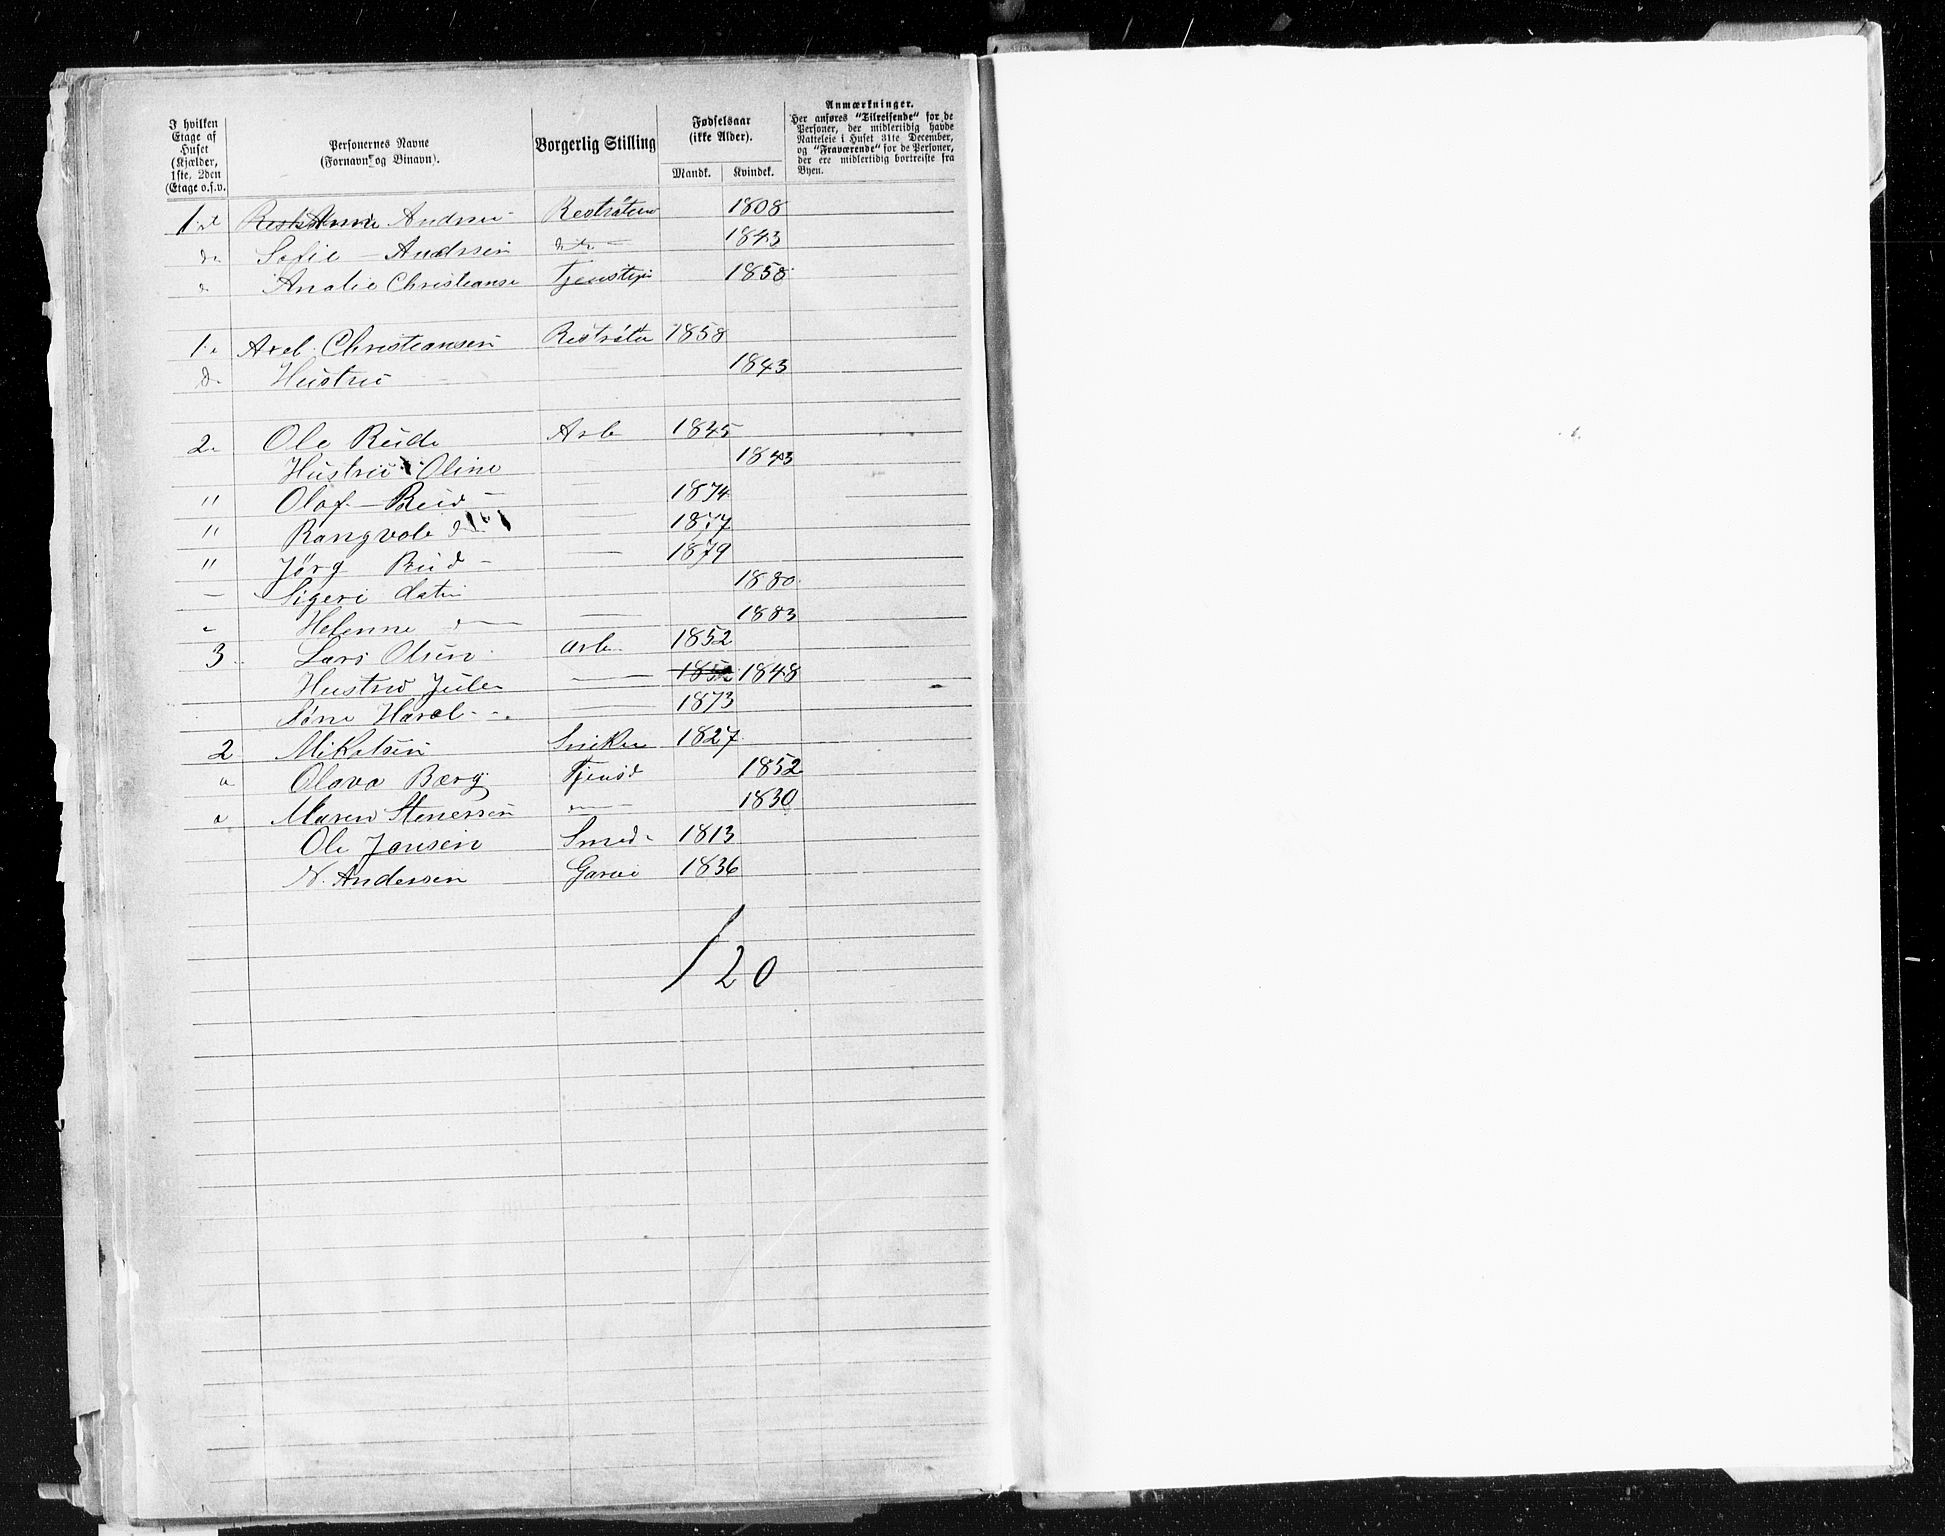 I hvilken Etage af Huset (Kjælder, 1ste, 2den Etage o.s.v.
Personernes Navne (Fornavn og Binavn).
Borgerlig Stilling
Fødselsaar (ikke Alder).
Mandk. Kvindek.
Anmærkninger.
Her anføres "Tilreisende" for de Personer, der midlertidig havde Natteleie i Huset 31te December, og "Fraværende" for de Personer, der ere midlertidig bortreiste fra Byen.
1st Andrsen 1808
do Sofie - Andrsen do 1843
d Analie Christianse 1858
1. Axel Christiansen 1858
d. Hustru 1843
2. Ole Rude Arb 1845
Hustru Oline 1843
" Olaf - Rud - 1874
" Rangvale d 1877
" Jørg Rud - 1879
- Sigeri dater 1880
Helenne d 1883
3. Lars Olsen Arb. 1852
Hustru Jule 1852 1848
Søne Haral - 1873
2 Mikelsen Sniker 1827
Olava Bærg Tjenst 1852
Maren Stenersen 1830
Ole Jansen Smed 1813
N. Andersen Garve 1836
120